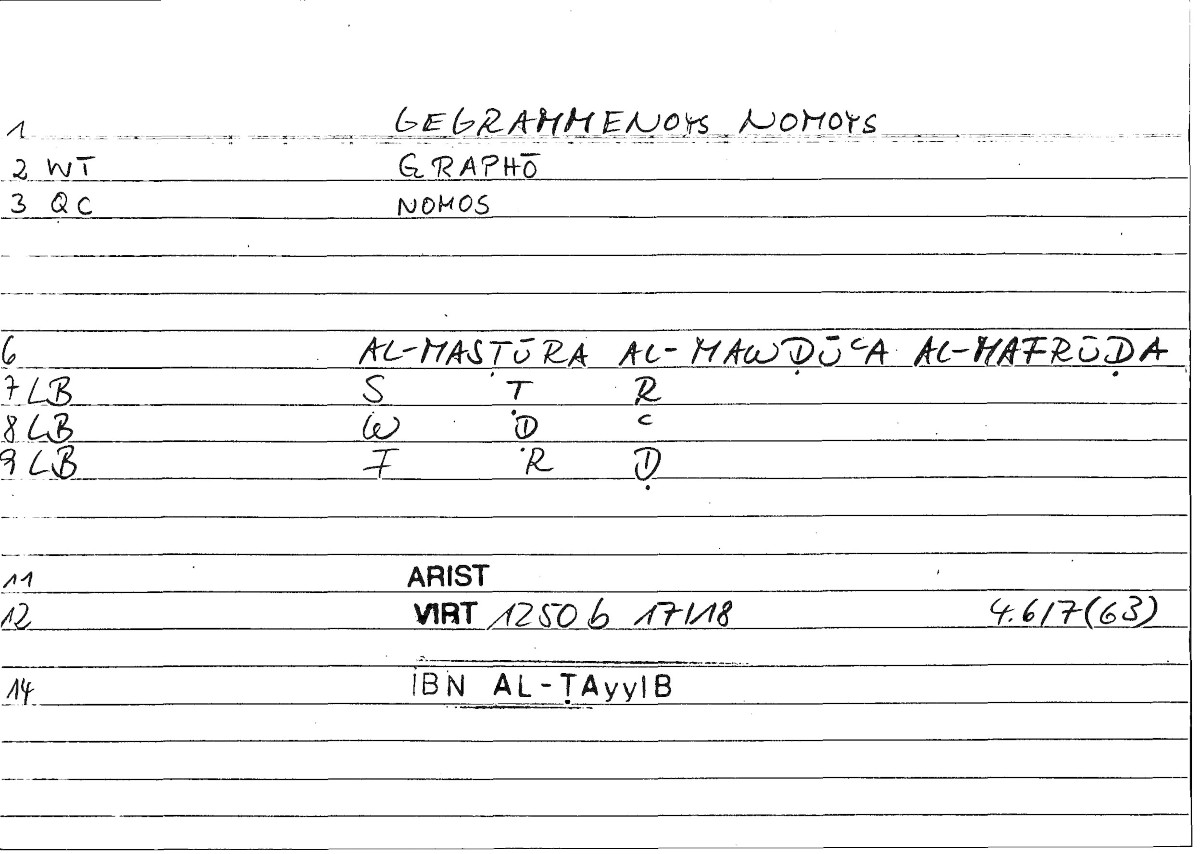 1 GEGRAMMENOYS NOMOYS
2 WT GRAPHŌ
3 QC NOMOS
6 AL-MASṬŪRA AL-MAWḌŪᶜA AL-MAFRŪḌA
7 LB S Ṭ R
8 LB W Ḍ ᶜ
9 LB F R Ḍ
11 ARIST
12 VIRT 1250 b 17/18 4.6/7(63)
14 IBN AL-ṬAyyIB